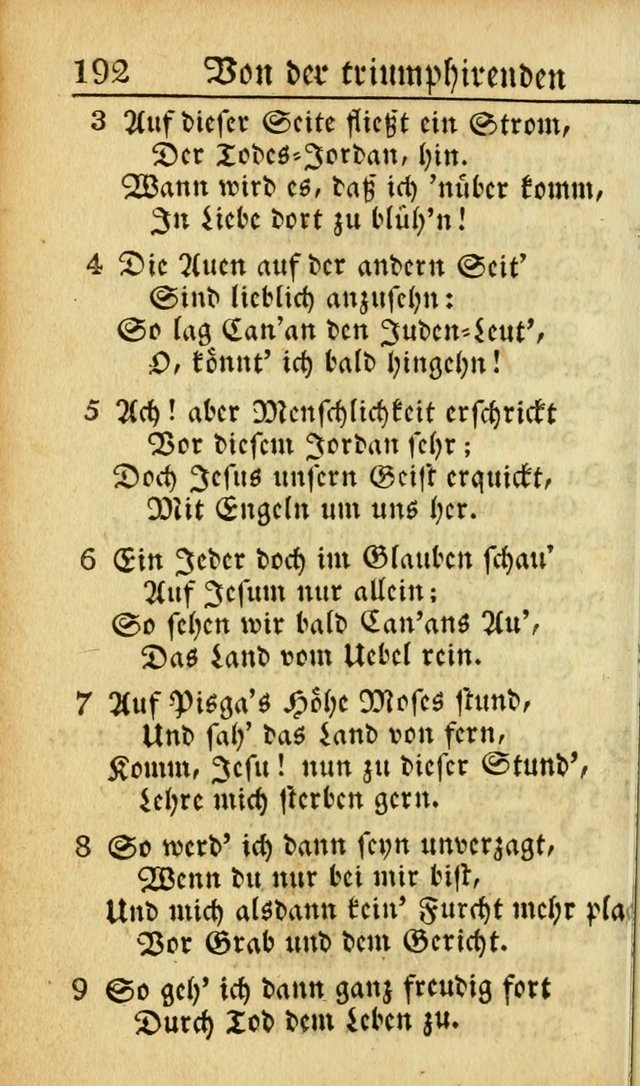 192 Von der triumphirenden
3 Auf dieser Seite fließt ein Strom,
Der Todes-Jordan, hin.
Wann wird es, daß ich 'nüber komm,
In Liebe dort zu blüh'n!
4 Die Auen auf der andern Seit'
Sind lieblich anzusehn:
So lag Can'an den Juden-Leut',
O, könnt' ich bald hingehn!
5 Ach! aber Menschlichkeit erschrickt
Vor diesem Jordan sehr;
Doch Jesus unsern Geist erquickt,
Mit Engeln um uns her.
6 Ein Jeder doch im Glauben schau'
Auf Jesum nur allein;
So sehen wir bald Can'ans Au',
Das Land vom Uebel rein.
7 Auf Pisga's Höhe Moses stund,
Und sah' das Land von fern,
Komm, Jesu! nun zu dieser Stund',
Lehre mich sterben gern.
8 So werd' ich dann seyn unverzagt,
Wenn du nur bei mir bist,
Und mich alsdann kein' Furcht mehr pla
Vor Grab und dem Gericht.
9 So geh' ich dann ganz freudig fort
Durch Tod dem Leben zu.